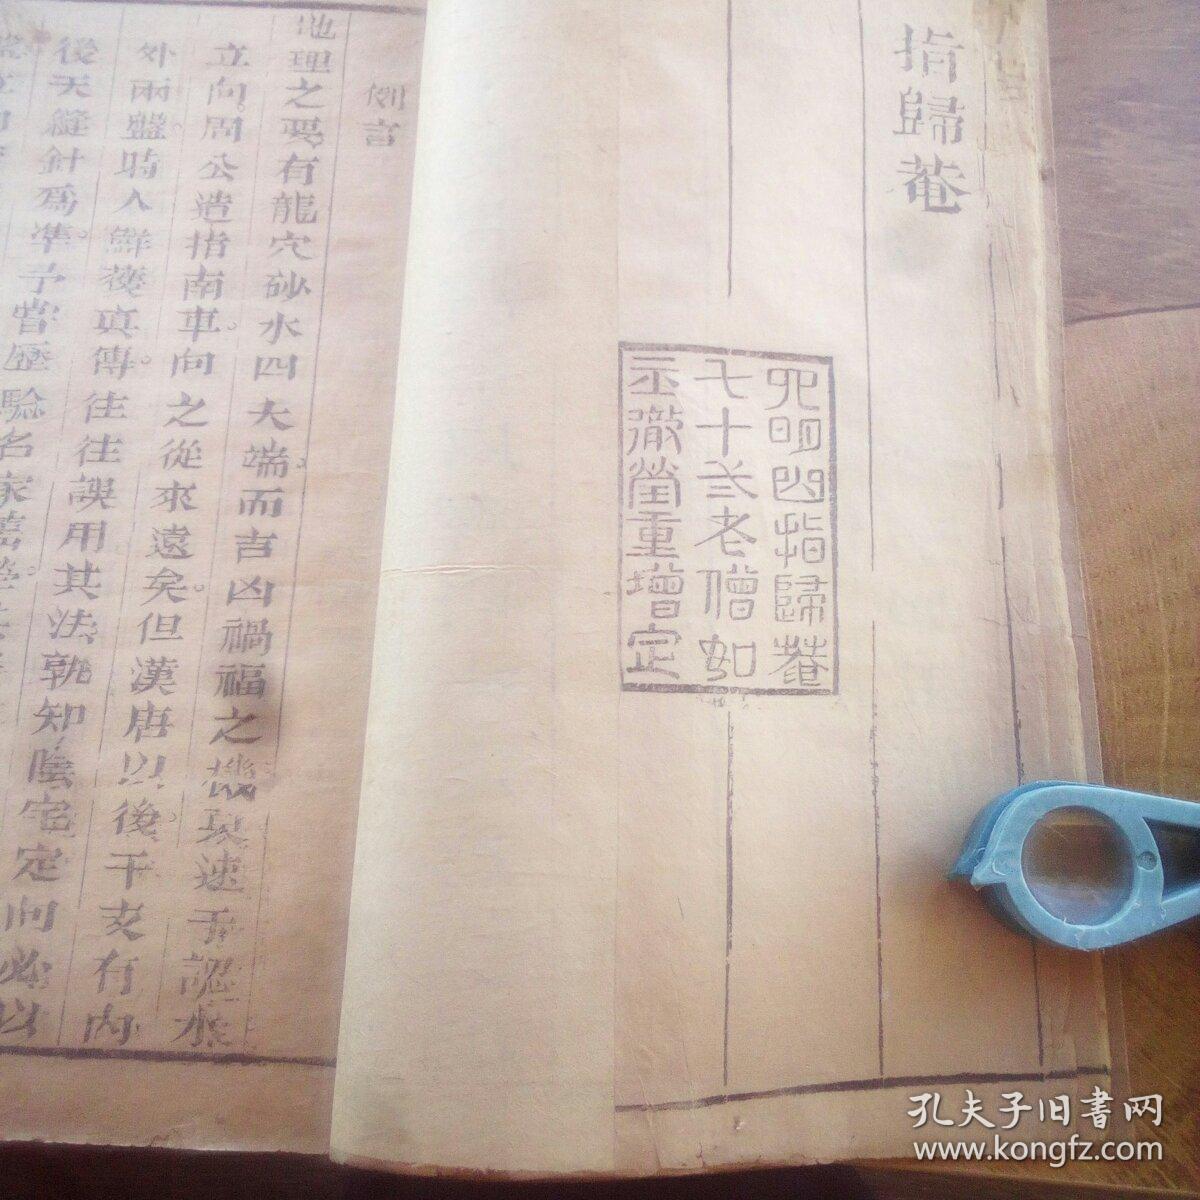 指歸菴
四明山指歸菴
七十弍老僧如
玉徹瑩重增定
例言
地理之要有龍穴砂水四大端而吉凶禍福之機莫速于認水
立向周公造指南車。向之從來遠矣。但漢唐以後。干支有內
外兩盤。時人鮮獲真傳。往往誤用其法孰知陰宅定向必以
後天縫針為準。予嘗歷驗名家舊塋
孔夫子旧書网
www.kongfz.com